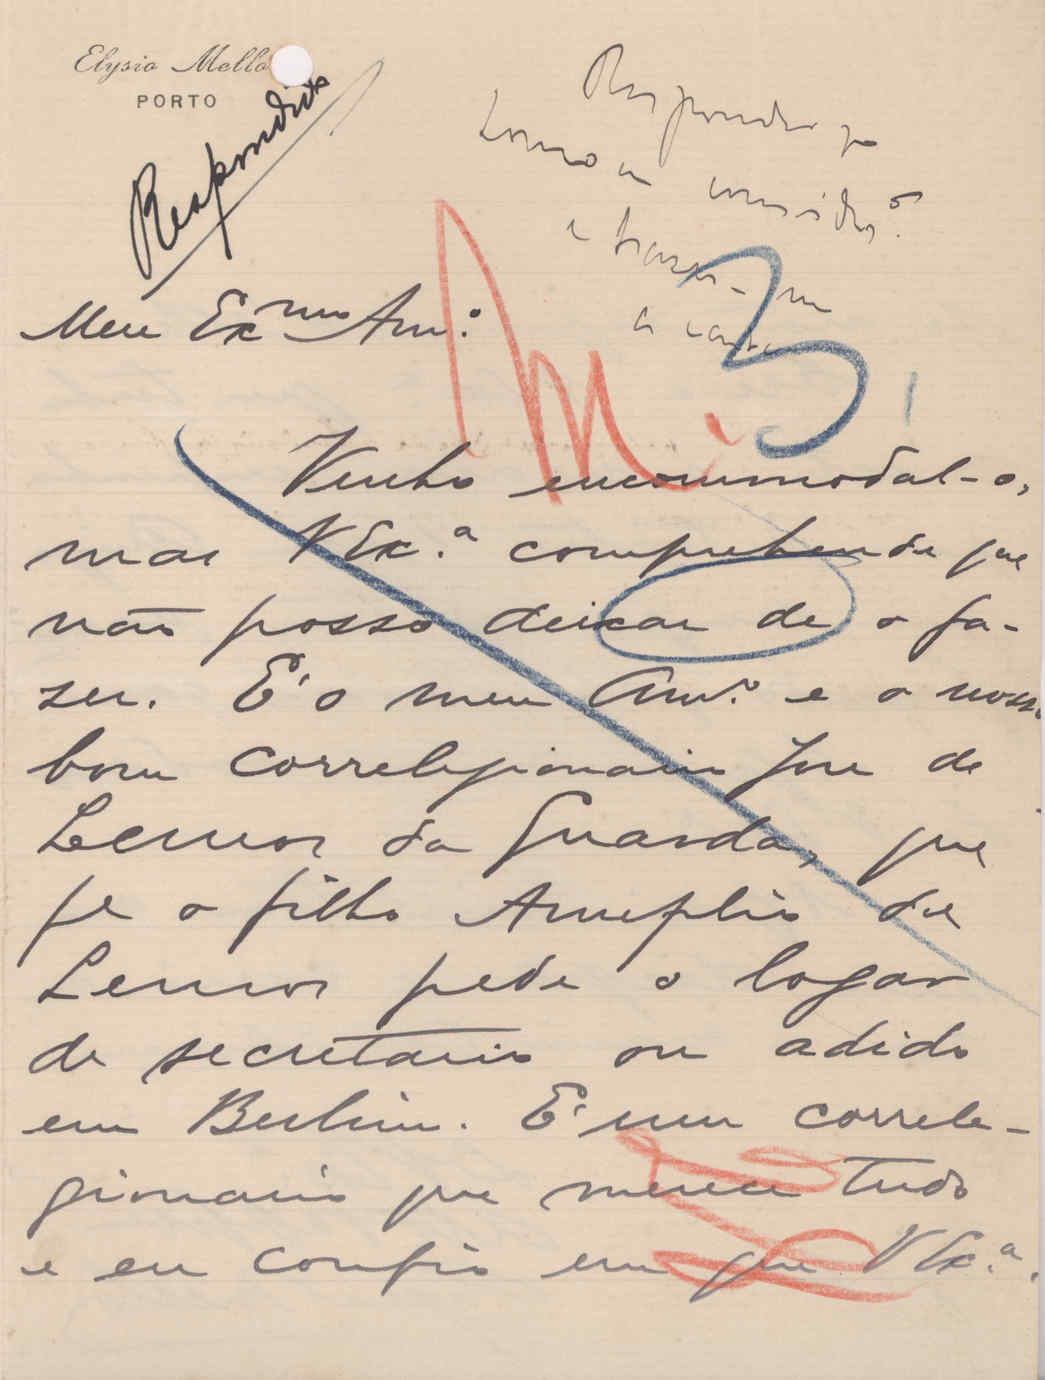 Elysio Mello
PORTO
Respondido
Responder q
tomo em consideração
e trazer-me
a carta
Meu Exmo Amº:
Venho encommodal-o,
mas V Exª comprehende que
não posso deixar de o fa-
zer. E' o meu Amº e o nosso
bom correlegionario José de
Lemos da Guarda, que
pª o filho Amephio de
Lemos pede o logar
de secretario ou adido
em Berlim. E' um correle-
gionario que merece tudo
e eu confio em que V Exª.